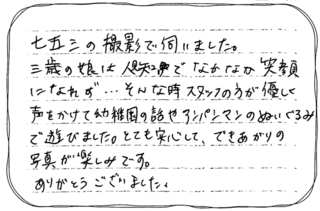 七五三の撮影で伺いました。
三歳の娘は人見知りでなかなか笑顔
になれず…そんな時スタッフの方が優しく
声をかけて幼稚園の話やアンパンマンのぬいぐるみ
で遊びました。とても安心して、できあがりの
写真が楽しみです。
ありがとうございました。